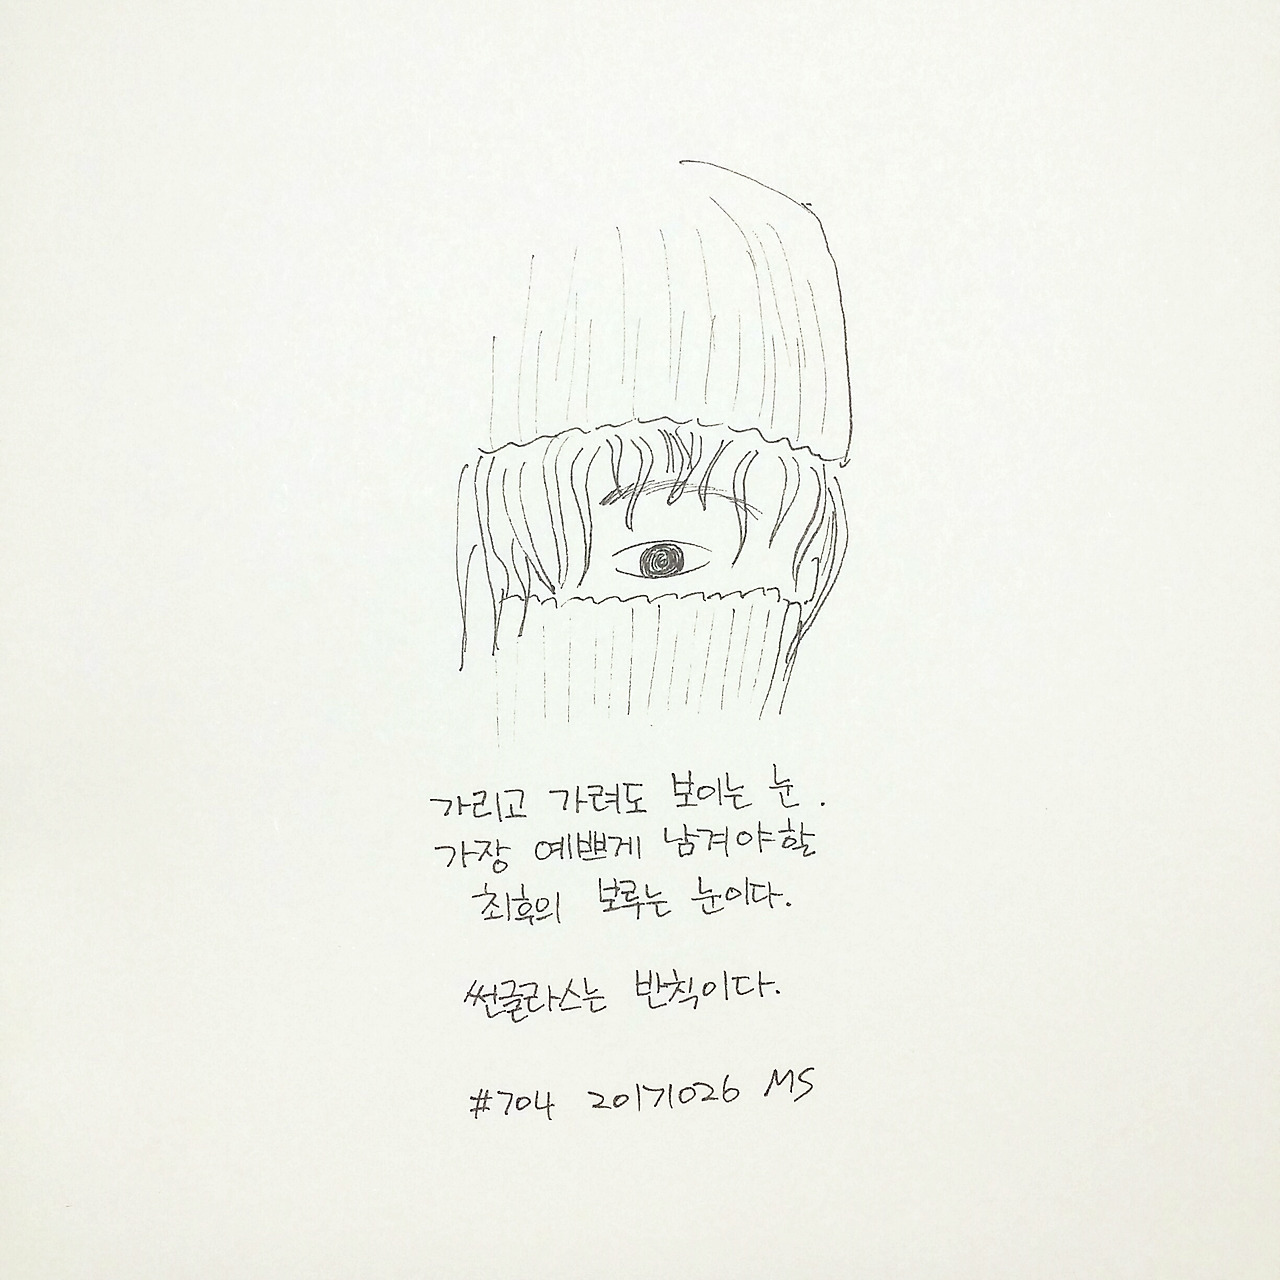 가리고 가려도 보이는 눈.
가장 예쁘게 남겨야할
최후의 보루는 눈이다.
썬글라스는 반칙이다.
#704 20171026 MS